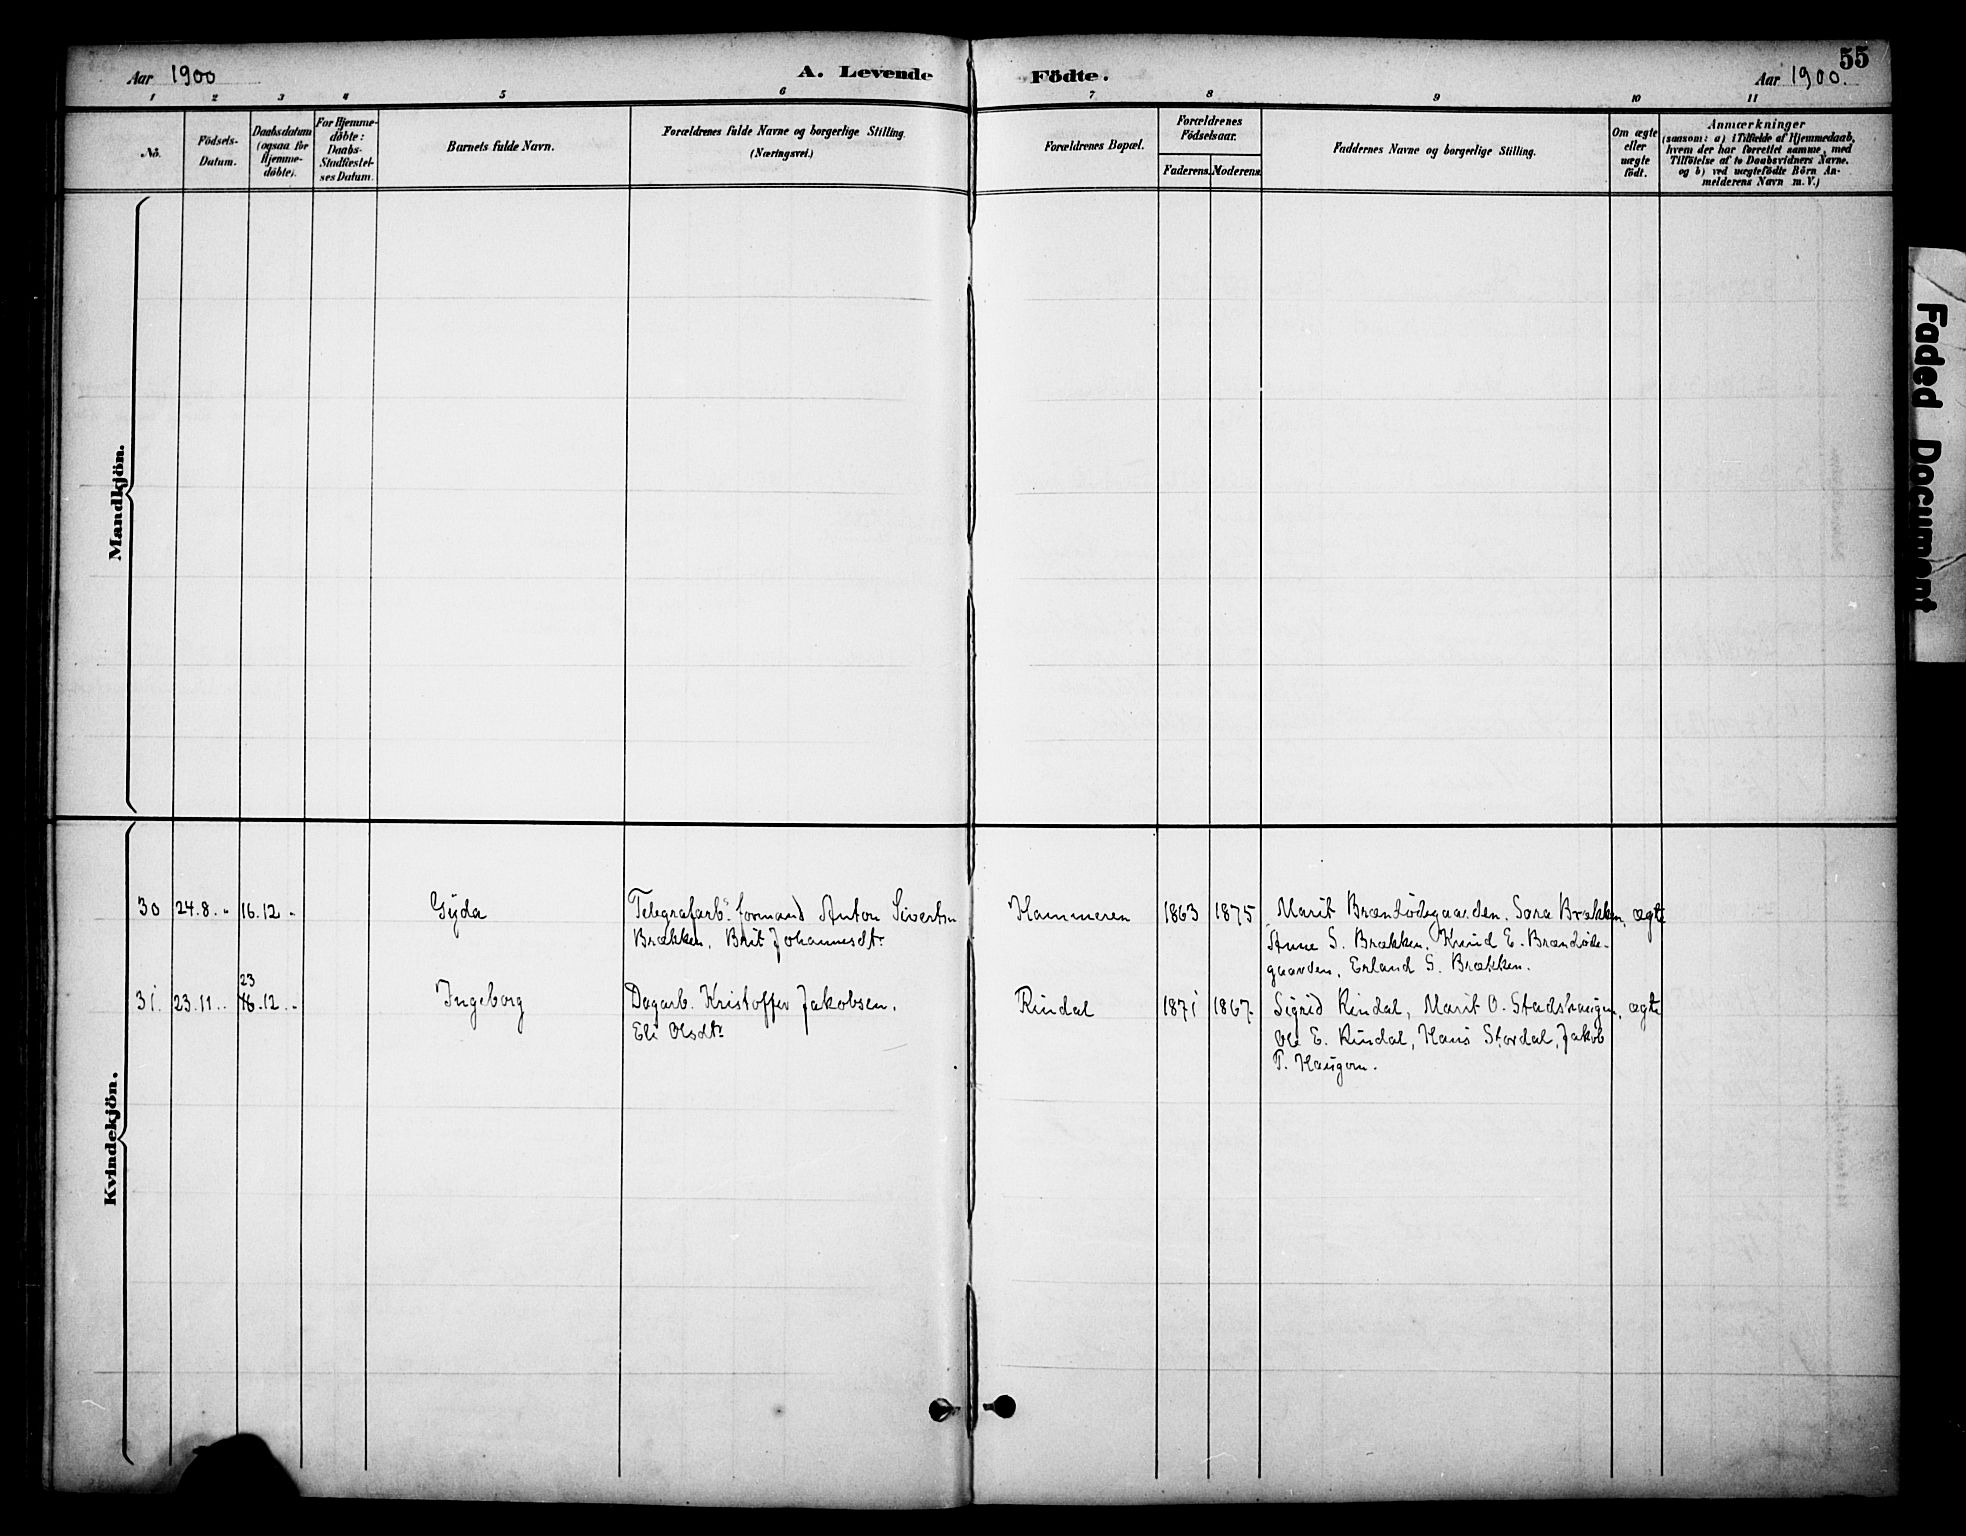 55
Aar 1900
A. Levende Födte.
Aar 1900.
1 2 3 4 5 6 7 8 9 10 11
No.
Födsels-Datum.
Daabsdatum (ogsaa for Hjemme-döbte).
For Hjemme-döbte: Daabs-Stadfestel-ses Datum.
Barnets fulde Navn.
Forældrenes fulde Navne og borgerlige Stilling. (Næringsvei.)
Forældrenes Bopæl.
Forældrenes Födselsaar.
Faderens. Moderens.
Faddernes Navne og borgerlige Stilling.
Om ægte eller uægte födt.
Anmærkninger
(saasom: a) i Tilfælde af Hjemmedaab,
hvem der har forrettet samme, med
Tilföielse af to Daabsvidners Navne.
og b) ved uægtefödte Börn An-
melderens Navn m. V.)
Mandkjön.
Kvindekjön.
30 24.8.„ 16.12„ Gyda Telegrafarb. formand Anton Sivertsn Hammeren 1863 1875 Marit Brændødegaarden. Sora Brækken, ægte
Brækken, Brit Johannesdtr Anne S. Brækken. Knud E. Brændøde-
gaarden, Erland S. Brækken.
23
31. 23.11.„ 16.12.„ Ingeborg Dagarb. Kristoffer Jakobsen. Rindal 1871 1867 Sigrid Rindal, Marit O. Stadshaugen, ægte
Eli Olsdtr Ole E. Rindal, Hans Stordal, Jakob
P. Haugom.
Faded Document